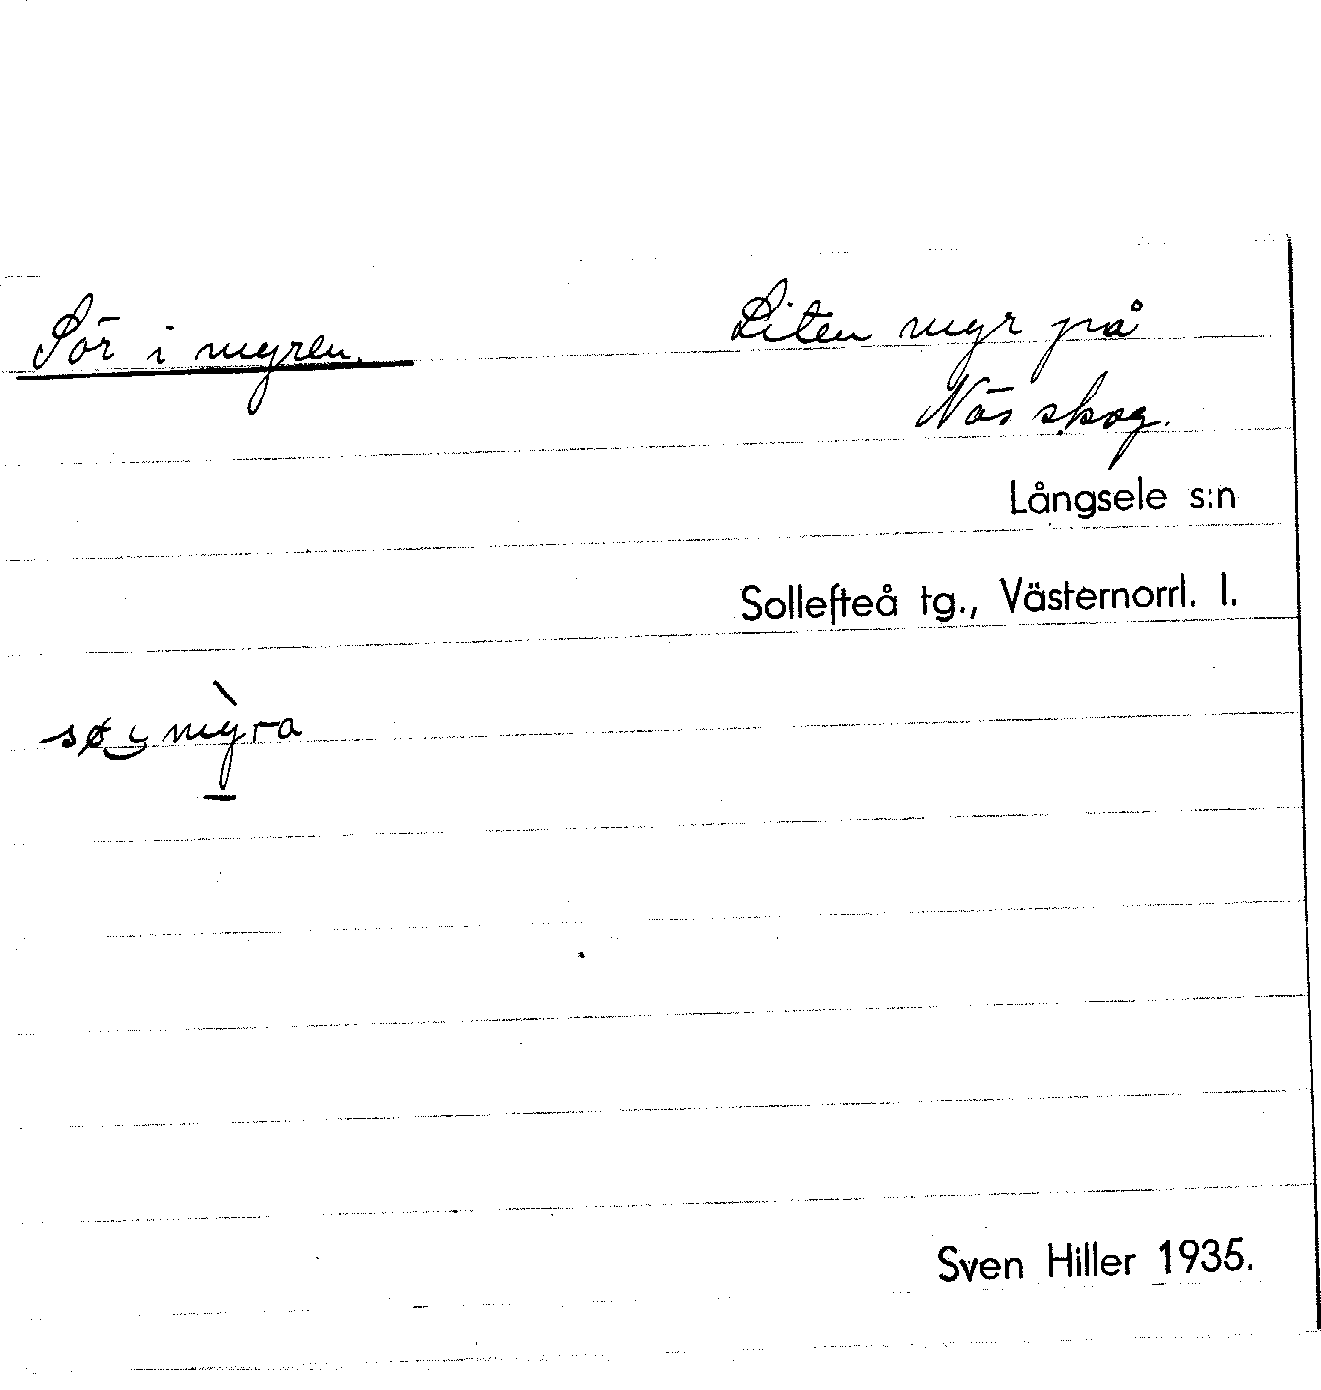 Sör i myren.
Liten myr på
Näs skog.
Långsele s:n
Sollefteå tg., Västernorrl. l.
sø i mỳra
Sven Hiller 1935.